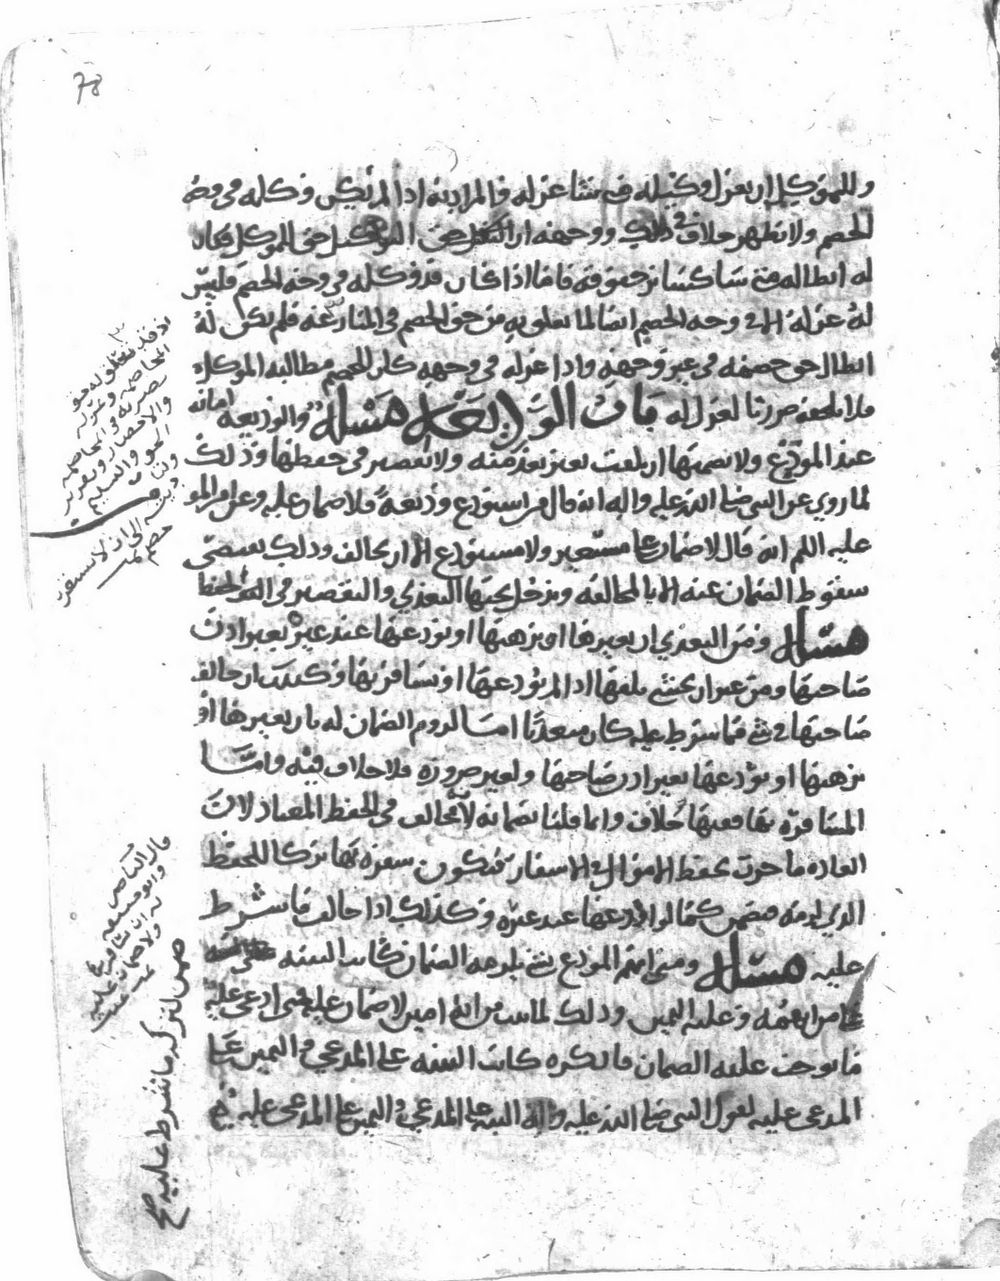 78
وللموكل ان يعزل وكيله متى شاعزله فالمراد به اذا لم يكن وكله في وجه
الخصم ولا نظهر خلاف في ذلك ووجهه ان التوكيل حق الموكل فكان
له ابطاله متى شا كسائر حقوقه فاما اذا كان قد وكله في وجه الخصم فليس
له عزله الا في وجه الخصم ايضا لما تعلق به من حق الخصم في المنازعه فلم يكن له
ابطال حق خصمه في غير وجهه واذا عزله في وجهه كان للخصم مطالبه الموكل
فلا يلحقه ضرر بالعزل له باب الوديعه مسله والوديعه امانه
عند المودع ولا يضمنها ان تلفت بغير تعد منه ولا تقصير في حفظها وذلك
لما روي عن النبي صلى الله عليه واله انه قال من استودع وديعه فلا ضمان عليه وعن امير المو
عليه السلم انه قال لا ضمان على مستعير ولا مستودع الا ان يخالف وذلك يقتضي
سقوط الضمان عنه الا بالمخالفه ويدخل تحتها التعدي والتقصير في الحفظ
مسله ومن التعدي ان يعيرها او يرهنها او يودعها عند غيره بغير اذن
صاحبها ومن غير ان يخشى تلفها اذا لم يودعها او يسافر بها وكذلك ان خالف
صاحبها في شي مما شرط عليه كان متعديا اما لزوم الضمان له بان يعيرها او
يرهنها او يودعها بغير اذن صاحبها ولغير ضروره فلا خلاف فيه واما
المسافره بها ففيها خلاف وانما قلنا بضمانه لانه مخالف في الحفظ المعتاد لان
العاده ما جرت بحفظ الاموال في الاسفار فيكون سفره بها تركا للحفظ
الذي لزمه فيضمن كما لو اودعها عند غيره وكذلك اذا خالف ما شرط
عليه مسله ومتى اتهم المودع بشي يلزمه الضمان كانت البينه على
من اتهمه وعليه اليمين وذلك لما ثبت من انه امين لا ضمان عليه فمتى ادعى عليه
ما يوجب عليه الضمان فانكره كانت البينه على المدعي واليمين على
المدعى عليه لقول النبي صلى الله عليه واله البينه على المدعي واليمين على المدعى عليه
اذ قد تعلق له حق
قال الناصر
ولا ضمان عليه
ضمن لتركه ما شرط عليه صح